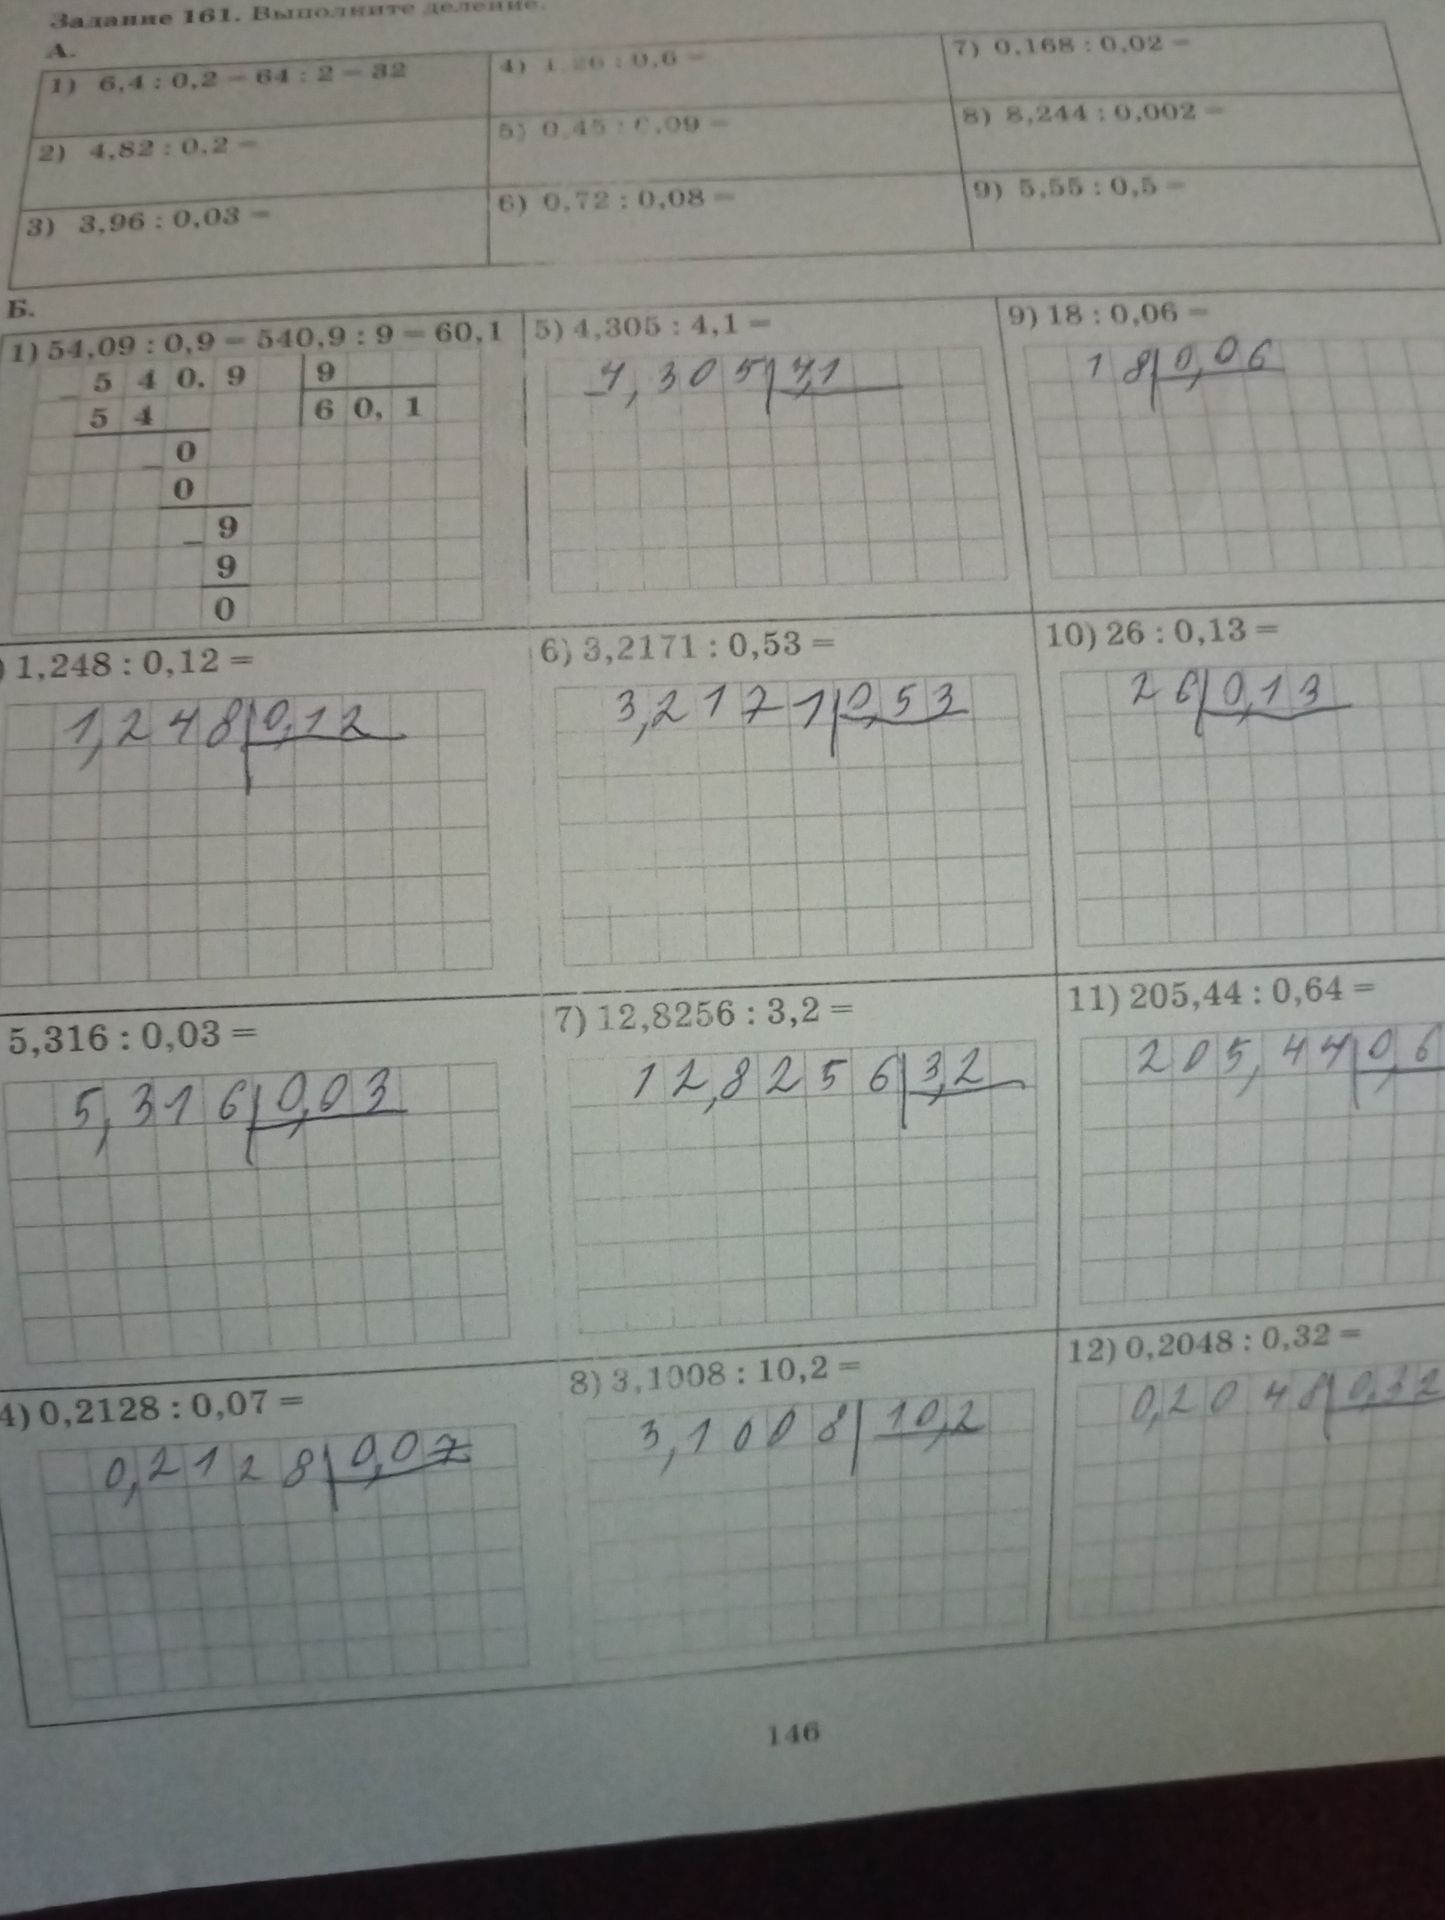 Задание 161. Выполните деление.
А.
1) 6,4 : 0,2 = 64 : 2 = 32
2) 4,82 : 0,2 =
3) 3,96 : 0,03 =
4) : 0,6 =
5) 0,45 : 0,09 =
6) 0,72 : 0,08 =
7) 0,168 : 0,02 =
8) 8,244 : 0,002 =
9) 5,55 : 0,5 =
Б.
1) 54,09 : 0,9 = 540,9 : 9 = 60,1
540,9 9
54 60,1
0
0
9
9
0
) 1,248 : 0,12 =
1,248 0,12
5,316 : 0,03 =
5,316 0,03
4) 0,2128 : 0,07 =
0,2128 0,07
5) 4,305 : 4,1 =
4,305 4,1
6) 3,2171 : 0,53 =
3,2171 0,53
7) 12,8256 : 3,2 =
12,8256 3,2
8) 3,1008 : 10,2 =
3,1008 10,2
9) 18 : 0,06 =
18 0,06
10) 26 : 0,13 =
26 0,13
11) 205,44 : 0,64 =
205,44 0,6
12) 0,2048 : 0,32 =
0,2048 0,32
146